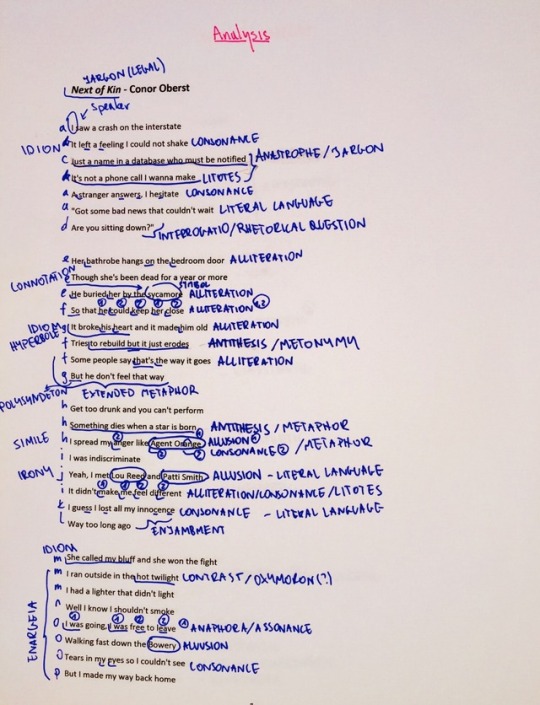 Analysis
JARGON (LEGAL)
Next of Kin - Conor Oberst
Speaker
a I saw a crash on the interstate
IDIOM b It left a feeling I could not shake CONSONANCE
c Just a name in a database who must be notified ANASTROPHE/JARGON
It's not a phone call I wanna make LITOTES
a A stranger answers, I hesitate CONSONANCE
a "Got some bad news that couldn't wait LITERAL LANGUAGE
d Are you sitting down?" INTERROGATIO/RHETORICAL QUESTION
e Her bathrobe hangs on the bedroom door ALLITERATION
CONNOTATION e Though she's been dead for a year or more
SYMBOL
e He buried her by the sycamore ALLITERATION
① ① ② ② ②
f So that he could keep her close ALLITERATION ①②
IDIOM f It broke his heart and it made him old ALLITERATION
HYPERBOLE f Tries to rebuild but it just erodes ANTITHESIS/METONYMY
f Some people say that's the way it goes ALLITERATION
g But he don't feel that way
POLYSYNDETON EXTENDED METAPHOR
h Get too drunk and you can't perform
h Something dies when a star is born ANTITHESIS/METAPHOR
SIMILE h I spread my anger like Agent Orange ALLUSION ①
CONSONANCE ② /METAPHOR
i I was indiscriminate
IRONY j Yeah, I met Lou Reed and Patti Smith ALLUSION - LITERAL LANGUAGE
i It didn't make me feel different ALLITERATION/CONSONANCE/LITOTES
k I guess I lost all my innocence CONSONANCE - LITERAL LANGUAGE
l Way too long ago ENJAMBMENT
IDIOM
m She called my bluff and she won the fight
m I ran outside in the hot twilight CONTRAST/OXYMORON(?)
m I had a lighter that didn't light
n Well I know I shouldn't smoke
ENARGEIA
o I was going, I was free to leave ANAPHORA/ASSONANCE
o Walking fast down the Bowery ALLUSION
o Tears in my eyes so I couldn't see CONSONANCE
p But I made my way back home